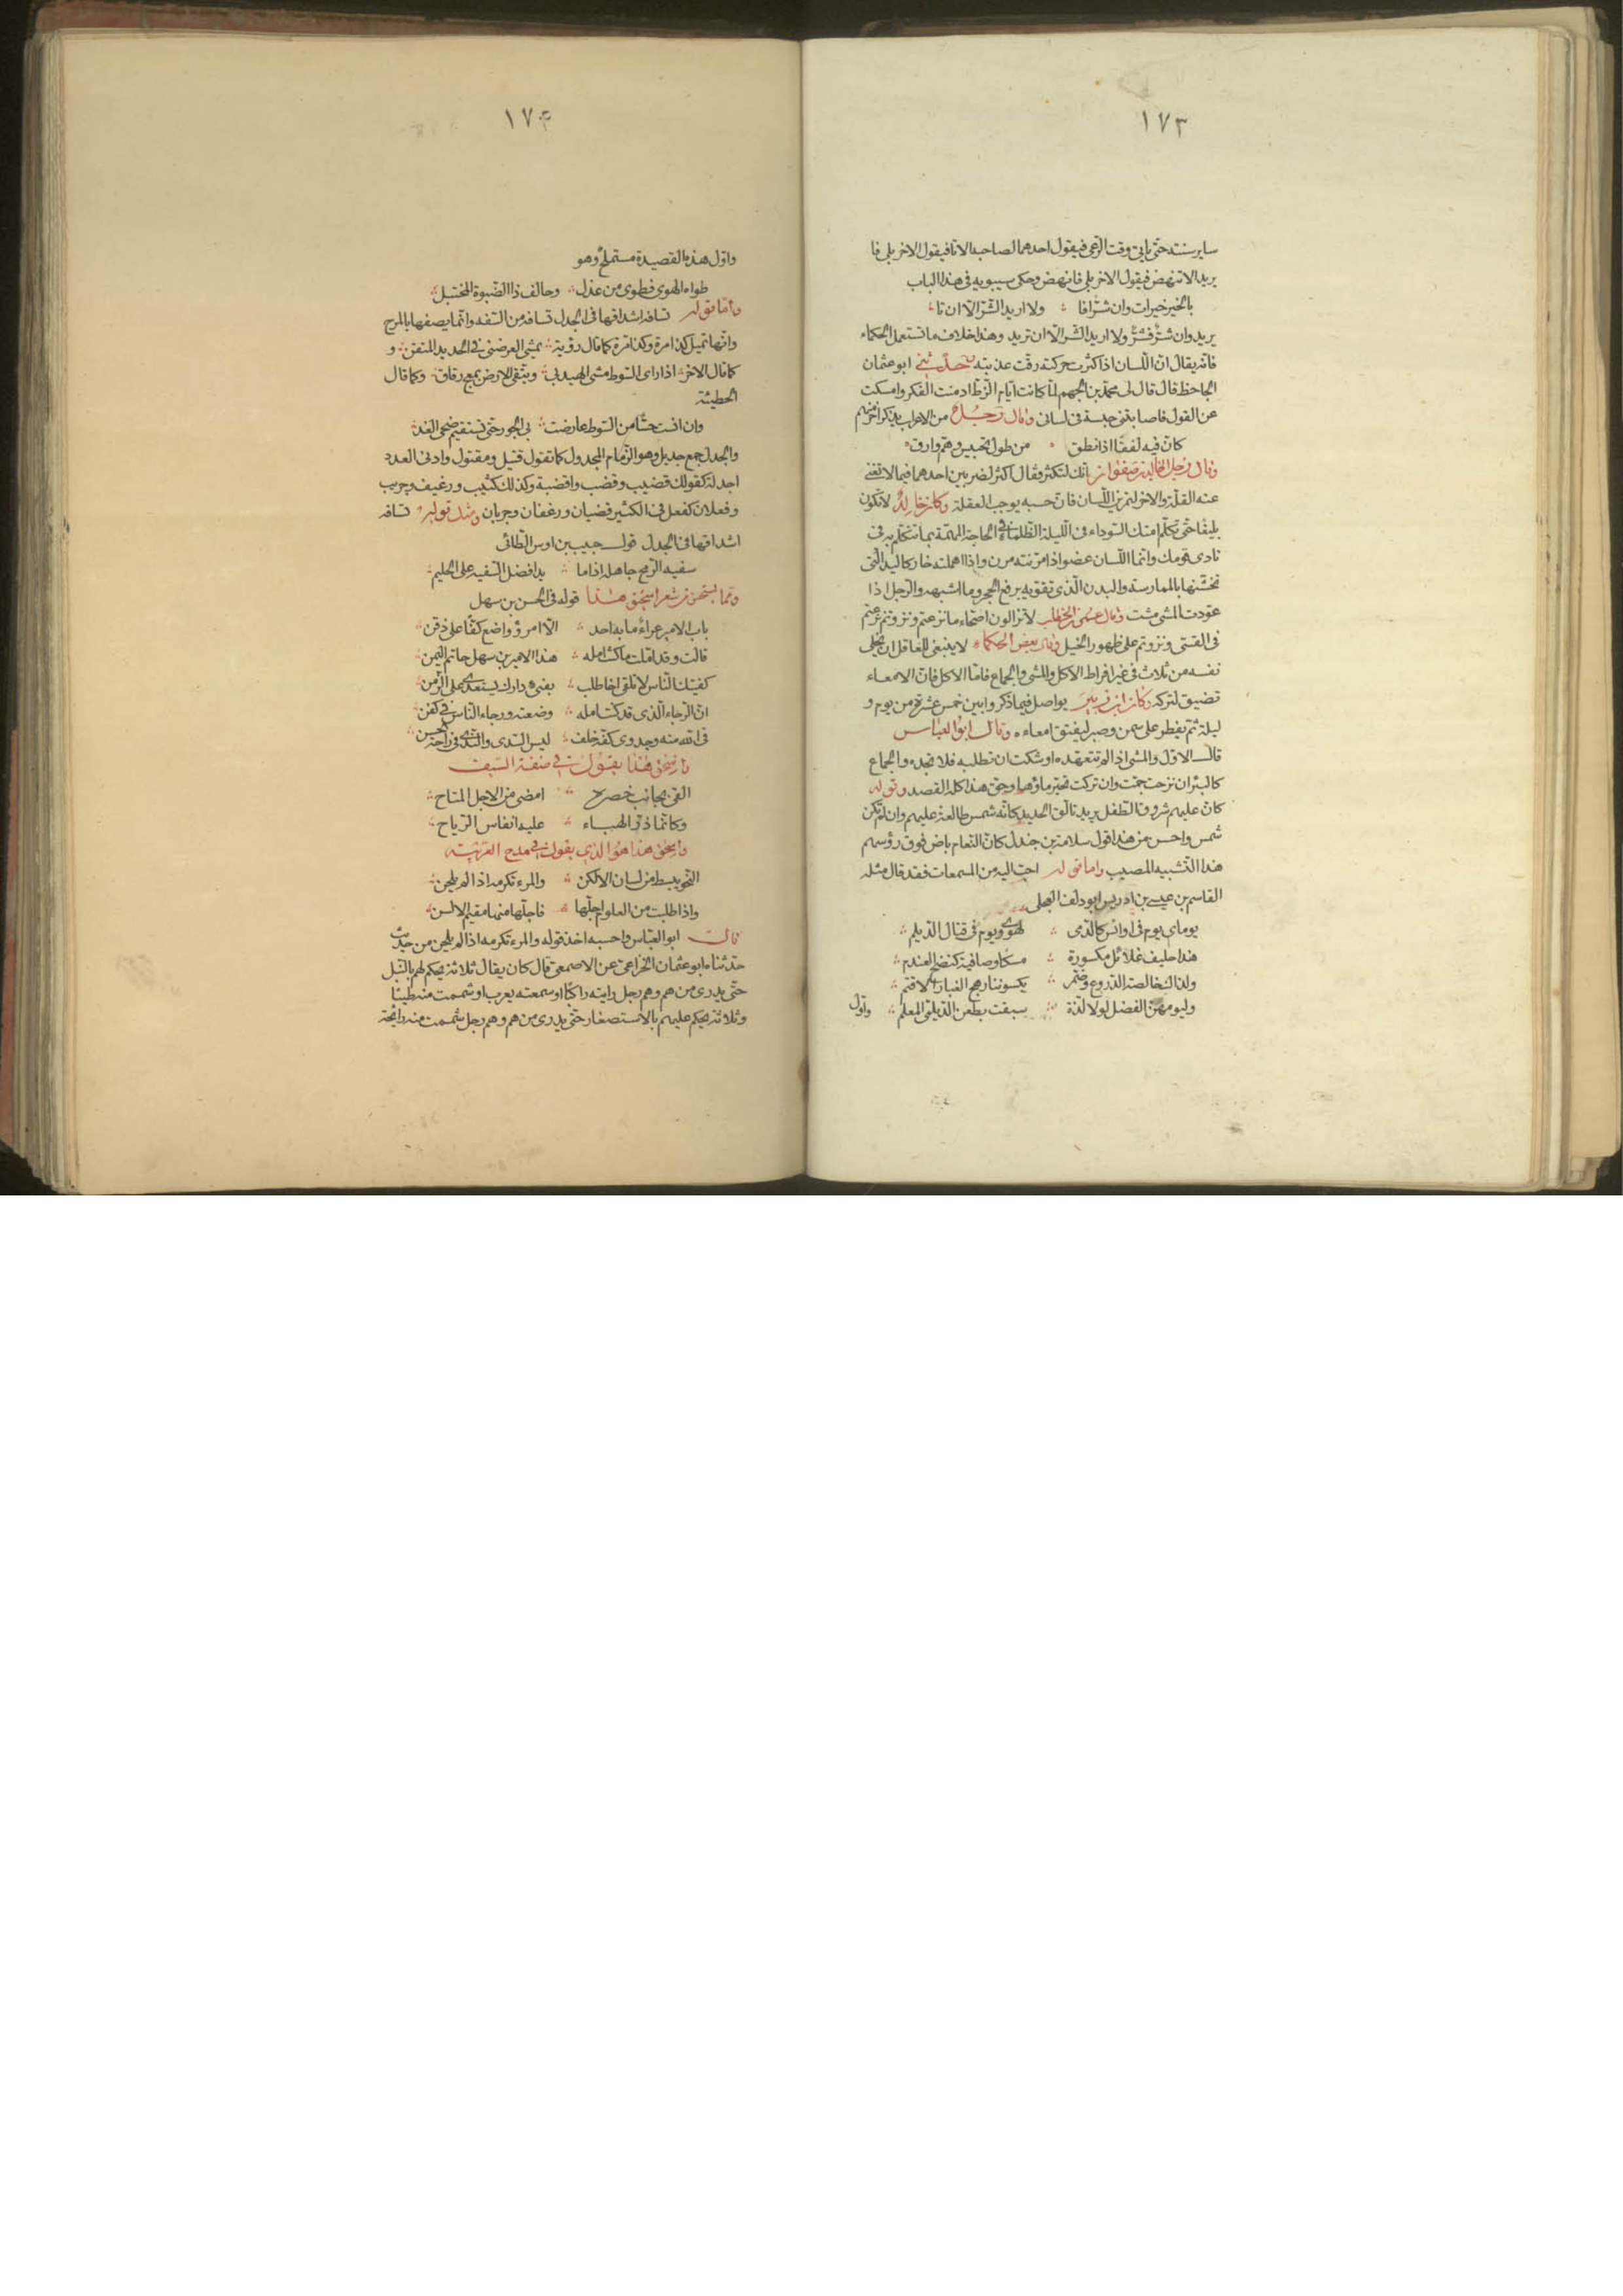 ١٧٣
ساير سنته حتى ياتى وقت الرعى فيقول احدهما لصاحبه الا تا فيقول الاخر بلى فا
يريد الا تنهض فيقول الاخر بلى فانهض وحكى سيبويه فى هذا الباب
بالخير خيرات وان شرّا فا ولا اريد الشّرّ الّا ان تا
يريد وان شرٌّ فشرٌّ ولا اريد الشّر الّا ان تريد وهذا خلاف ما تستعمل الحكماء
فانّه يقال انّ اللّسان اذا كثرت حركته رقّت عذبته حدّثنى ابو عثمان
الجاحظ قال قال لى محمّد بن الجهم لمّا كانت ايّام الزّطّ ادمنت الفكر وامسكت
عن القول فاصابتنى حبسة فى لسانى وقال رجل من الاعراب يذكر اخر منهم
كانّ فيه لففًا اذا نطق من طول تحبيس وهمّ وارق
وقال رجل لخالد بن صفوان انك لتكثر فقال اكثر لضربين احدهما فيما لا تغنى
عنه القلّة والاخر لتمرين اللّسان فانّ حبسه يورجب العقلة وكان خالد لا تكون
بليغًا حتّى تكلّم امتك السّوداء فى اللّيلة الظّلماء فى الحاجة المهمّة بما تتكلّم به فى
نادى قومك وانّما اللّسان عضو اذا مرّنته مرن واذا اهملته خار كاليد الّتى
تخشّنها بالممارسة والبدن الّذى تقوّيه برفع الحجر وما اشبهه والرّجل اذا
عوّدت المشى مشت وقال عمر بن الخطّاب لا تزالون اصحّاء ما نزعتم ونزوتم نزعتم
فى القسىّ ونزوتم على ظهور الخيل وقال بعض الحكماء لا ينبغى للعاقل ان يخلى
نفسه من ثلاث فى غير افراط الاكل والمشى والجماع فامّا الاكل فانّ الامعاء
تضيق لتركه وكان ابن الزبير يواصل فيما ذكروا بين خمس عشرة من يوم و
ليلة ثمّ يفطر على سمن وصبر ليفتق امعاءه وقال ابو العبّاس
قال الاوّل والمشى اذا لم تتعهّده اوشكت ان تطلبه فلا تجده والجماع
كالبئر ان نزحت جمّت وان تركت تحيّر ماؤها وحقّ هذا كلّه القصد وقوله
كانّ عليهم شروق الطّفل يريد تالّق الحديد كانّه شمس طالعة عليهم وان لم تكن
شمس واحسن من هذا قول سلامة بن جندل كانّ النّعام باض فوق رؤسهم
هذا التّشبيه المصيب وامّا قوله احبّ اليه من المسمعات فقد قال مثله
القاسم بن عيسى بن ادريس ابو دلف العجلى
يوماى يوم فى اوانس كالدّمى لهوى ويوم فى قتال الدّيلم
هذا حليف غلائل مكسورة مسكا وصافية كنضح العندم
ولذاك خالصة الدّروع وضمّر يكسوننا رهج الغبار الاقتم
وليومهنّ الفضل لولا لذّة سبقت بطعن الدّيلمى المعلم
واوّل
١٧٤
واوّل هذه القصيدة مستملح وهو
طواه الهوى فطوى من عذل وحالف ذا الصّبوة المختبل
وامّا قوله تسافه اشداقها فى الجدل تسافه من السّفه وانّما يصفها بالمرح
وانّها تميل كذا مرة وكذا مرة كما قال رؤبة يمشى العرضنى فى الحديد المتقن و
كما قال الاخر اذا راى السّوط مشى الهيدبى ويتّقى الارض بمعج رقاق وكما قال
الحطيئة
وان انست حسًّا من السّوط عارضت بى الجور حتّى تستقيم ضحى الغد
والجدل جمع جديل وهو الزّمام المجدول كما تقول قتيل ومقتول وادنى العدد
اجدلة كقولك قضيب وقضب واقضبة وكذلك كثيب ورغيف وجريب
وفعلان كفعل فى الكثير قضبان ورغفان وجربان ومثل قوله تسافه
اشداقها فى الجدل قول حبيب بن اوس الطّائى
سفيه الرّمح جاهله اذا ما بدا فضل السّفيه على الحليم
وممّا يستحسن من شعر اسحق هذا قوله فى الحسن بن سهل
باب الامير عراء ما به احد الّا امرؤ واضع كفًّا على ذقن
قالت وقد املت ما كنت امله هذا الامير بن سهل حاتم اليمن
كفيتك النّاس لا تلقى اخا طلب بفىء دارك يستعدى على الزّمن
انّ الرّجاء الّذى قد كنت امله وضعته ورجاء النّاس فى كفن
فى الله منه وجدوى كفّه خلف ليس السّدى والنّدى فى راحة الحسن
واسحق هذا يقول فى صفة السّيف
القى بجانب خصره امضى من الاجل المتاح
وكانّما ذرّ الهباء عليه انفاس الرّياح
واسحق هذا هو الذى يقول فى مدح العربيّة
النّحو يبسط من لسان الالكن والمرء تكرمه اذا لم يلحن
واذا طلبت من العلوم اجلّها فاجلّها منها مقيم الالسن
قال ابو العبّاس واحسبه اخذ قوله والمرء تكرمه اذا لم يلحن من حديث
حدّثناه ابو عثمان الخزاعى عن الاصمعى قال كان يقال ثلاثة يحكم لهم بالنّبل
حتّى يدرى من هم وهم رجل رايته راكبًا او سمعته يعرب او شممت منه طيبًا
وثلاثة يحكم عليهم بالاستصغار حتّى يدرى من هم وهم رجل شممت منه رائحة